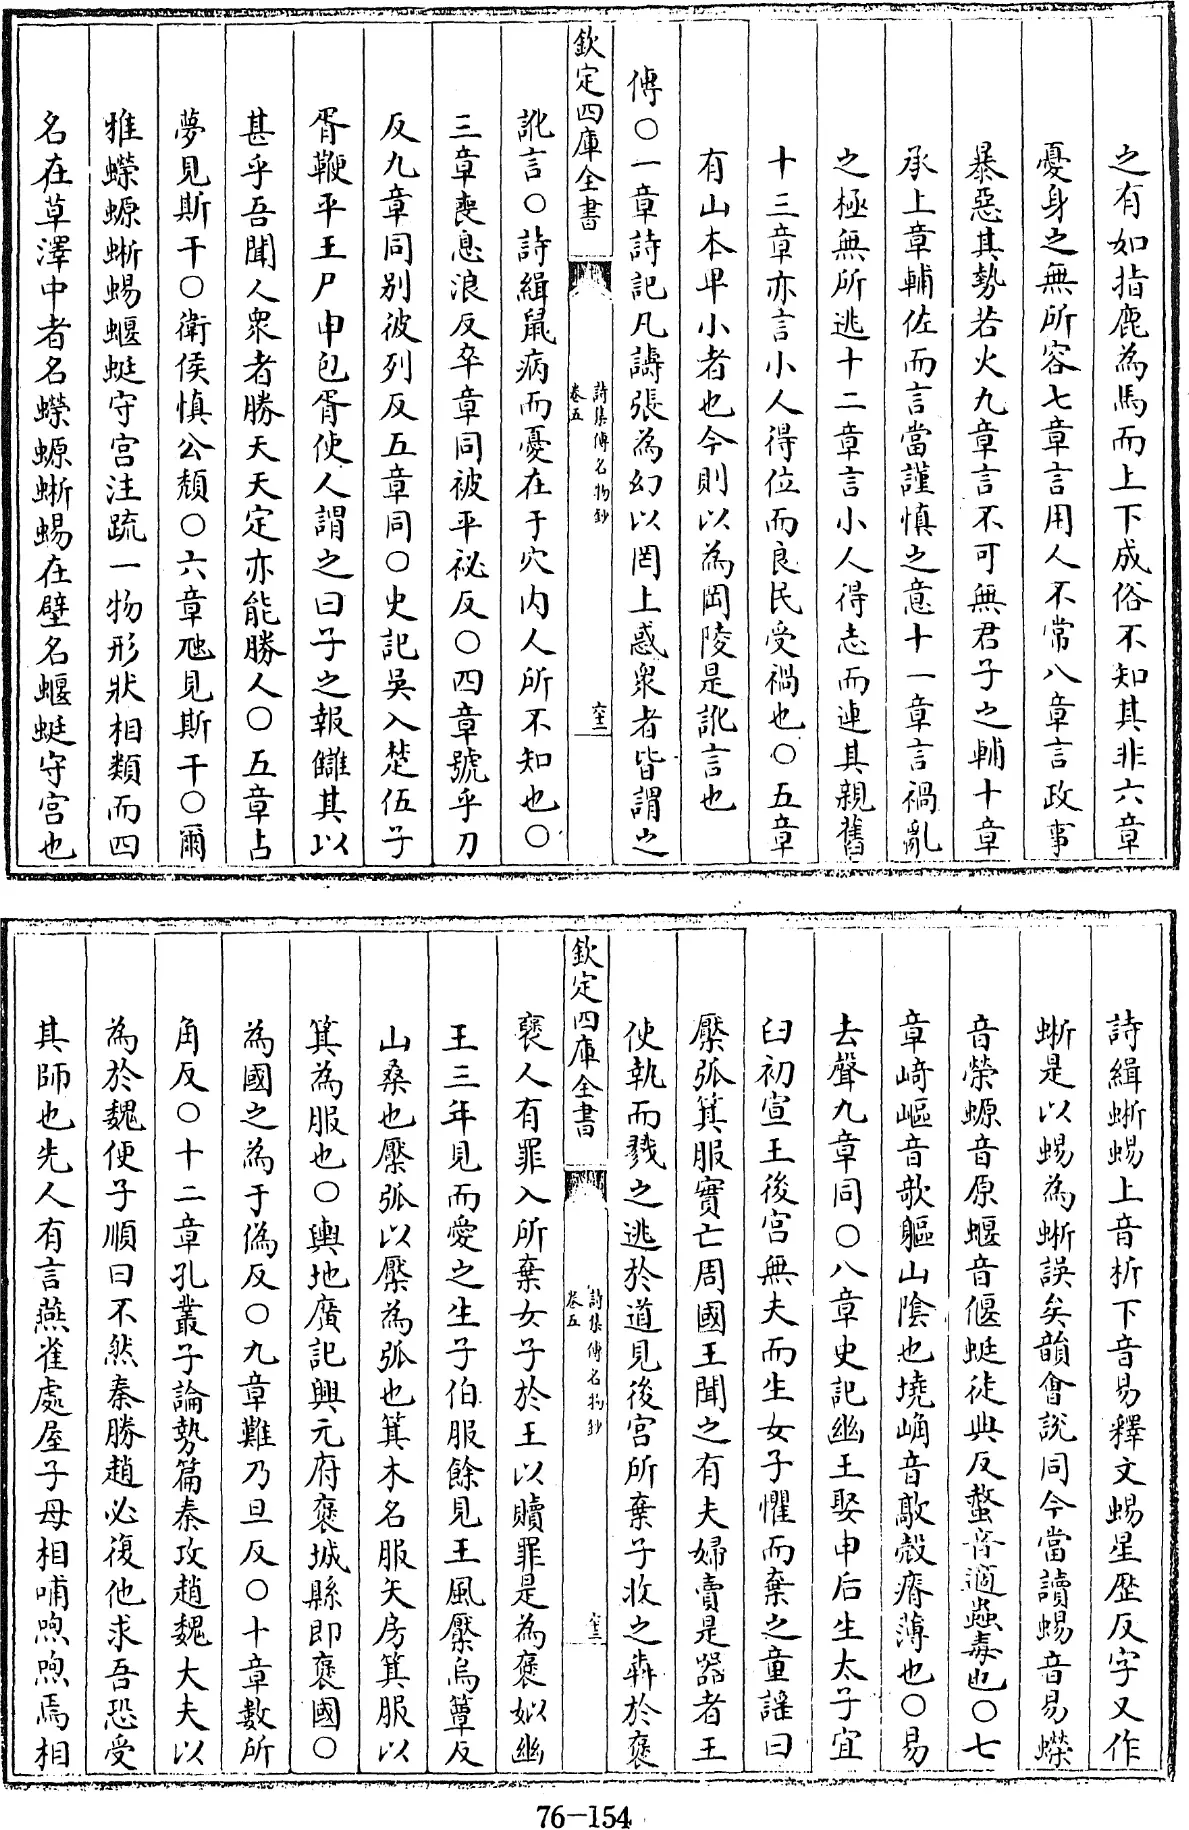 之有如指鹿為馬而上下成俗不知其非六章
憂身之無所容七章言用人不常八章言政事
暴惡其勢若火九章言不可無君子之輔十章
承上章輔佐而言當謹慎之意十一章言禍亂
之極無所逃十二章言小人得志而連其親舊
十三章亦言小人得位而良民受禍也○五章
有山本卑小者也今則以為岡陵是訛言也
傳○一章詩記凡譸張為幻以罔上惑衆者皆謂之
欽定四庫全書
詩集傳名物鈔
卷五
六十二
訛言○詩緝鼠病而憂在于穴内人所不知也○
三章喪息浪反卒章同被平祕反○四章號乎刀
反九章同别彼列反五章同○史記吳入楚伍子
胥鞭平王尸申包胥使人謂之曰子之報讎其以
甚乎吾聞人衆者勝天天定亦能勝人○五章占
夢見斯干○衛侯慎公頽○六章虺見斯干○爾
雅蠑螈蜥蜴蝘蜓守宫注疏一物形狀相類而四
名在草澤中者名蠑螈蜥蜴在壁名蝘蜓守宫也
詩緝蜥蜴上音析下音易釋文蜴星歴反字又作
蜥是以蜴為蜥誤矣韻會説同今當讀蜴音易蠑
音榮螈音原蝘音偃蜓徒典反螫音適蟲毒也○七
章崎嶇音欹軀山陰也墝崅音敲殻瘠薄也○易
去聲九章同○八章史記幽王娶申后生太子宜
臼初宣王後宫無夫而生女子懼而棄之童謡曰
檿弧箕服實亡周國王聞之有夫婦賣是器者王
使執而戮之逃於道見後宫所棄子收之犇於褒
欽定四庫全書
詩集傳名物鈔
卷五
六十三
褒人有罪入所棄女子於王以贖罪是為褒姒幽
王三年見而愛之生子伯服餘見王風檿烏簟反
山桑也檿弧以檿為弧也箕木名服矢房箕服以
箕為服也○輿地廣記興元府褒城縣即褒國○
為國之為于偽反○九章難乃旦反○十章數所
角反○十二章孔叢子論勢篇秦攻趙魏大夫以
為於魏便子順曰不然秦勝趙必復他求吾恐受
其師也先人有言燕雀處屋子母相哺煦煦焉相
76-154